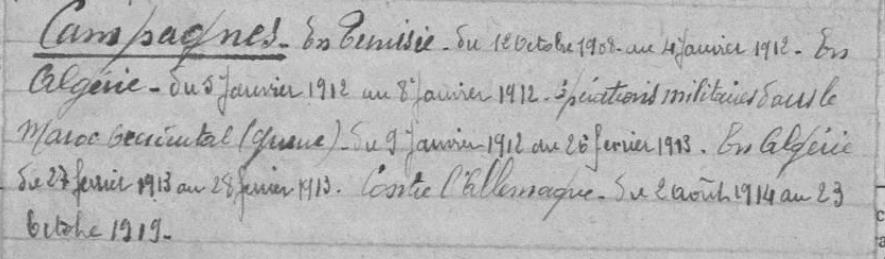 Campagnes - En Tunisie - du 12 Octobre 1908 au 4 Janvier 1912 - En
Algérie - du 5 Janvier 1912 au 8 Janvier 1912. Opérations militaires dans le
Maroc Occidental (guerre) - du 9 Janvier 1912 au 26 fevrier 1913. En Algérie
du 27 fevrier 1913 au 28 fevrier 1913. Contre l'Allemagne - du 2 août 1914 au 23
Octobre 1919 -